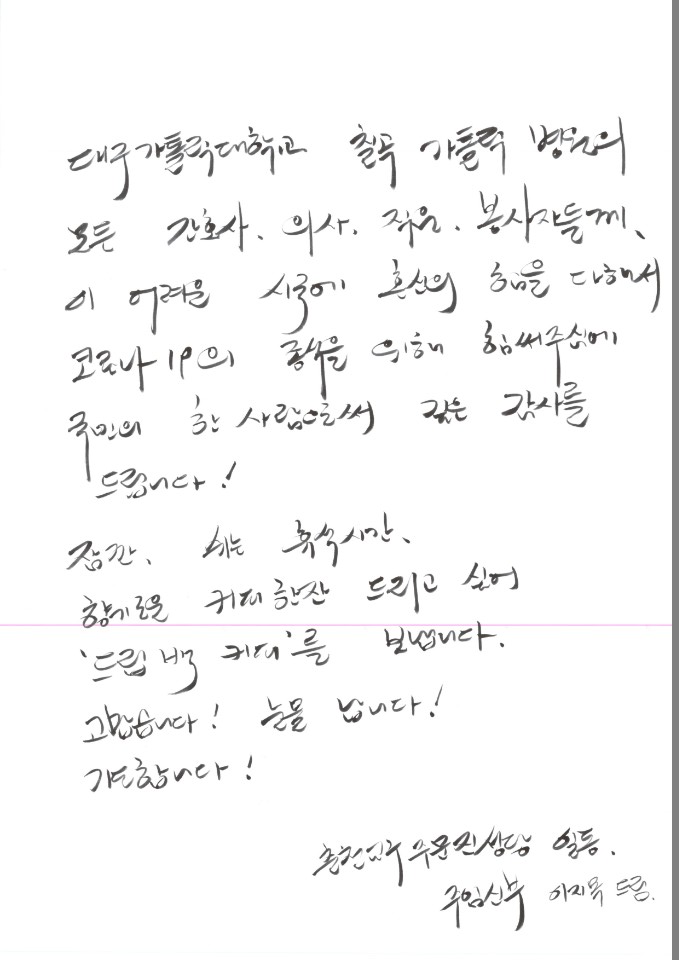 대구가톨릭대학교 칠곡 가톨릭 병원의
모든 간호사, 의사, 직원, 봉사자들께,
이 어려운 시국에 혼신의 힘을 다해서
코로나19의 종식을 위해 힘써주심에
국민의 한 사람으로써 깊은 감사를
드립니다!
잠깐, 쉬는 휴식시간,
향기로운 커피한잔 드리고 싶어
'드립백 커피'를 보냅니다.
고맙습니다! 눈물 납니다!
기도합니다!
춘천교구 주문진성당 일동.
주임신부 이지목 드림.